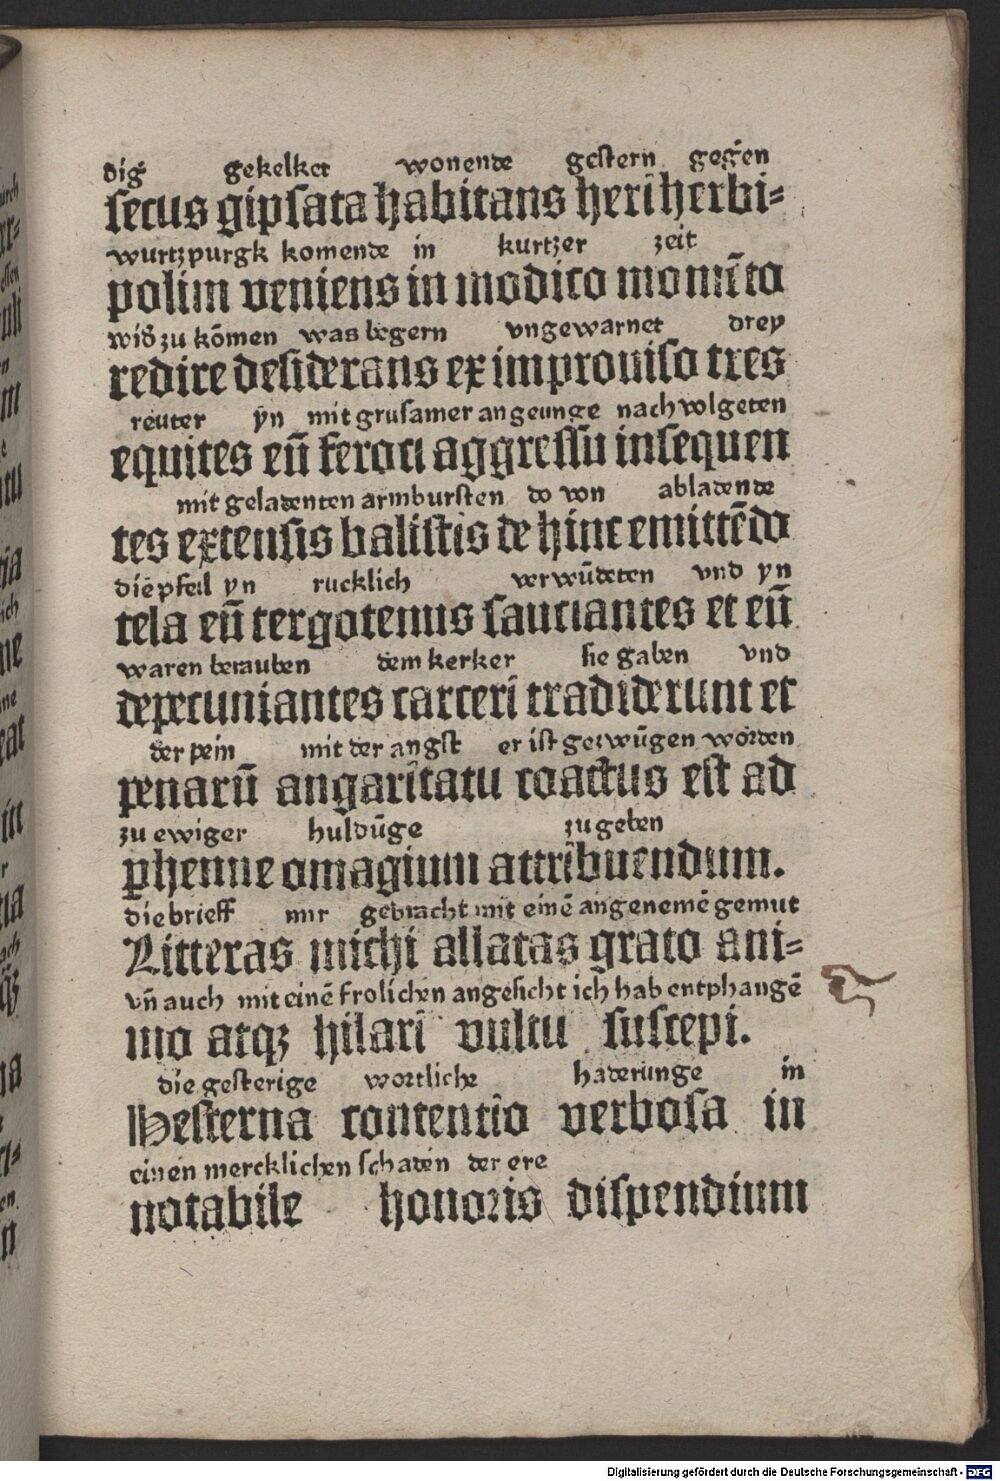 dig̃ gekelket wonende gestern geg̃en
secus gipsata habitans heri herbi⸗
wurtzpurgk komende in kurtzer zeit
polim veniens in modico momẽto
wid̃ zu kõmen was begern vngewarnet drey
redire desiderans ex improuiso tres
reuter yn mit grusamer angeunge nachvolgeten
equites eũ feroci aggressu insequen
mit geladenten armbursten do von abladende
tes extensis balistis de hinc emittẽdo
die pfeil yn rucklich verwũdeten vnd yn
tela eũ tergotenus sauciantes et eũ
waren berauben dem kerker sie gaben vnd
depecuniantes carceri tradiderunt et
der pein mit der angst er ist gezwũgen worden
penarũ angaritatu coactus est ad
zu ewiger huldũge zu geben
ꝑhenne omagium attribuendum.
die brieff mir gebracht mit einẽ angenemẽ gemut
Litteras michi allatas grato ani⸗
vñ auch mit einẽ frolichen angesicht ich hab entphangẽ
mo atqꝫ hilari vultu suscepi.
die gesterige wortliche haderunge in
Hesterna contentio verbosa in
einen mercklichen schaden der ere
notabile honoris dispendium
Digitalisierung gefördert durch die Deutsche Forschungsgemeinschaft - DFG